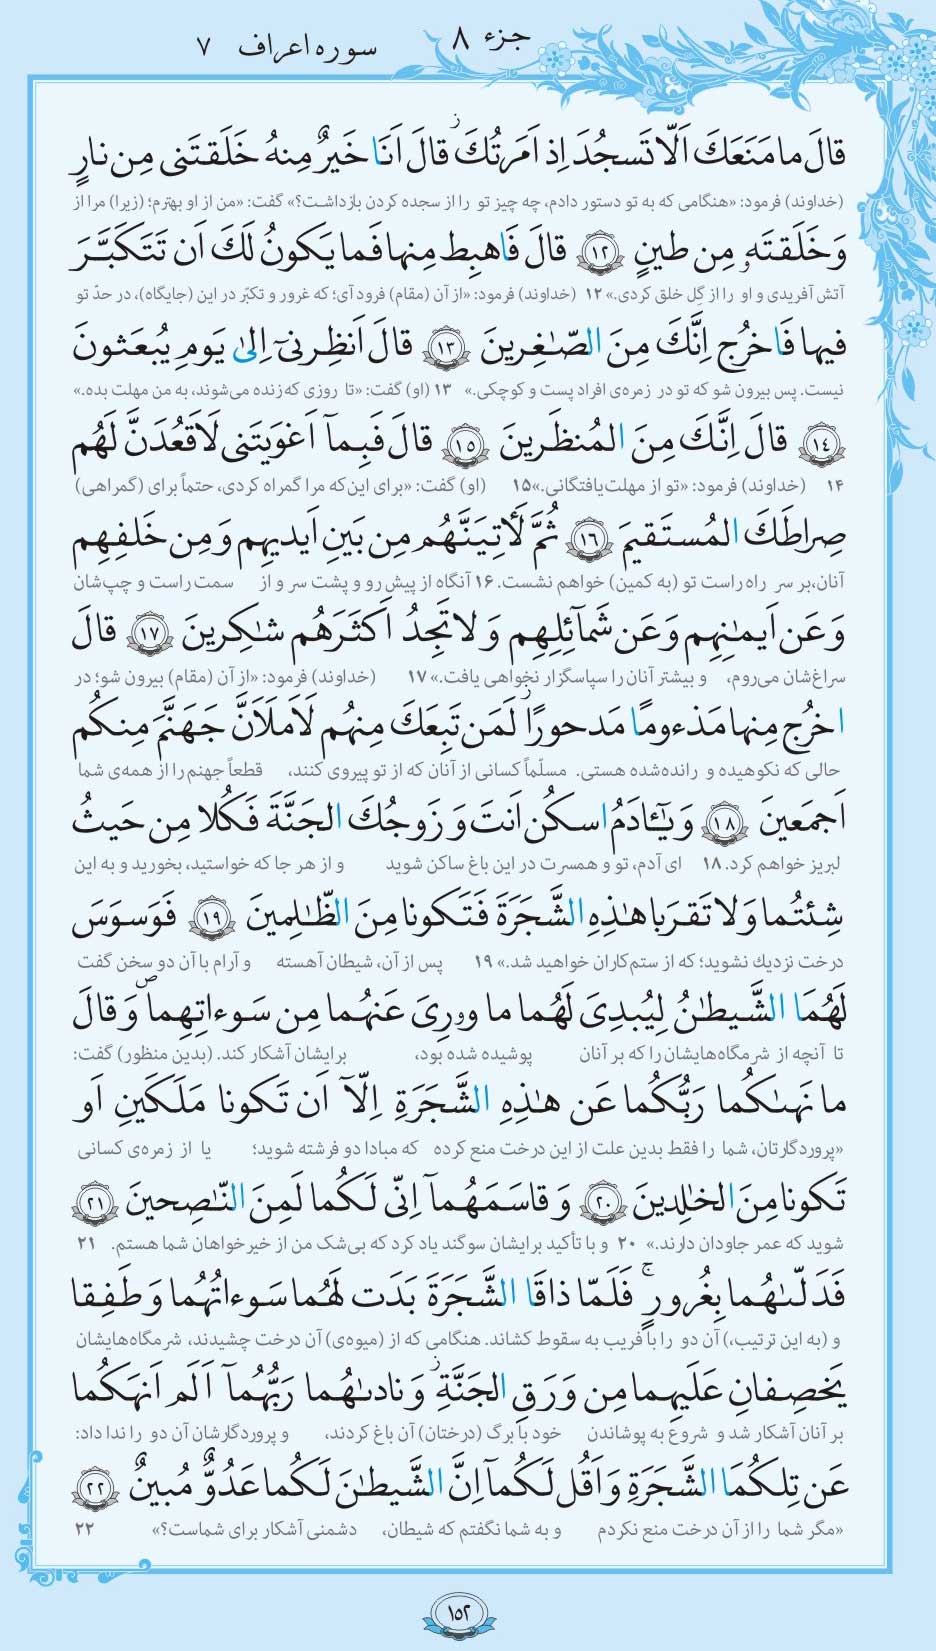 جزء ۸
سوره اعراف ۷
قالَ ما مَنَعَكَ اَلّا تَسجُدَ اِذ اَمَرتُكَ ۖ قالَ اَنَا خَيرٌ مِنهُ خَلَقتَنى مِن نارٍ
(خداوند) فرمود: «هنگامی که به تو دستور دادم، چه چیز تو را از سجده کردن بازداشت؟» گفت: «من از او بهترم؛ (زیرا) مرا از
وَ خَلَقتَهٗ مِن طينٍ ﴿۱۲﴾ قالَ فَاهبِط مِنها فَما يَكونُ لَكَ اَن تَتَكَبَّرَ
آتش آفریدی و او را از گِل خلق کردی.» ۱۲ (خداوند) فرمود: «از آن (مقام) فرود آی؛ که غرور و تکبّر در این (جایگاه)، در حدّ تو
فيها فَاخرُج اِنَّكَ مِنَ الصّٰغِرينَ ﴿۱۳﴾ قالَ اَنظِرنىٓ اِلىٰ يَومِ يُبعَثونَ
نیست. پس بیرون شو که تو در زمره‌ی افراد پست و کوچکی.» ۱۳ (او) گفت: «تا روزی که زنده می‌شوند، به من مهلت بده.»
﴿۱۴﴾ قالَ اِنَّكَ مِنَ المُنظَرينَ ﴿۱۵﴾ قالَ فَبِمآ اَغوَيتَنى لَاَقعُدَنَّ لَهُم
۱۴ (خداوند) فرمود: «تو از مهلت‌یافتگانی.» ۱۵ (او) گفت: «برای این‌که مرا گمراه کردی، حتماً برای (گمراهی)
صِراطَكَ المُستَقيمَ ﴿۱۶﴾ ثُمَّ لَأَتِيَنَّهُم مِن بَينِ اَيديهِم وَ مِن خَلفِهِم
آنان، بر سر راه راست تو (به کمین) خواهم نشست. ۱۶ آنگاه از پیش رو و پشت سر و از سمت راست و چپ‌شان
وَ عَن اَيمٰنِهِم وَ عَن شَمآئِلِهِم وَ لا تَجِدُ اَكثَرَهُم شٰكِرينَ ﴿۱۷﴾ قالَ
سراغ‌شان می‌روم، و بیشتر آنان را سپاسگزار نخواهی یافت.» ۱۷ (خداوند) فرمود: «از آن (مقام) بیرون شو؛ در
اخرُج مِنها مَذءومًا مَدحورًا ۖ لَمَن تَبِعَكَ مِنهُم لَاَملَاَنَّ جَهَنَّمَ مِنكُم
حالی که نکوهیده و رانده‌شده هستی. مسلّماً کسانی از آنان که از تو پیروی کنند، قطعاً جهنم را از همه‌ی شما
اَجمَعينَ ﴿۱۸﴾ وَ يٰٓـٔادَمُ اسكُن اَنتَ وَ زَوجُكَ الجَنَّةَ فَكُلا مِن حَيثُ
لبریز خواهم کرد. ۱۸ ای آدم، تو و همسرت در این باغ ساکن شوید و از هر جا که خواستید، بخورید و به این
شِئتُما وَ لا تَقرَبا هٰذِهِ الشَّجَرَةَ فَتَكونا مِنَ الظّٰلِمينَ ﴿۱۹﴾ فَوَسوَسَ
درخت نزدیك نشوید؛ که از ستم‌کاران خواهید شد.» ۱۹ پس از آن، شیطان آهسته و آرام با آن دو سخن گفت
لَهُمَا الشَّيطٰنُ لِيُبدِىَ لَهُما ما وورِىَ عَنهُما مِن سَوءاتِهِما ۖ وَ قالَ
تا آنچه از شرمگاه‌هایشان را که بر آنان پوشیده شده بود، برایشان آشکار کند. (بدین منظور) گفت:
ما نَهىٰكُما رَبُّكُما عَن هٰذِهِ الشَّجَرَةِ اِلّآ اَن تَكونا مَلَكَينِ اَو
«پروردگارتان، شما را فقط بدین علت از این درخت منع کرده که مبادا دو فرشته شوید؛ یا از زمره‌ی کسانی
تَكونا مِنَ الخٰلِدينَ ﴿۲۰﴾ وَ قاسَمَهُمآ اِنّى لَكُما لَمِنَ النّٰصِحينَ ﴿۲۱﴾
شوید که عمر جاودان دارند.» ۲۰ و با تأکید برایشان سوگند یاد کرد که بی‌شک من از خیرخواهان شما هستم. ۲۱
فَدَلّىٰهُما بِغُرورٍ ۚ فَلَمّا ذاقَا الشَّجَرَةَ بَدَت لَهُما سَوءاتُهُما وَ طَفِقا
و (به این ترتیب،) آن دو را با فریب به سقوط کشاند. هنگامی که از (میوه‌ی) آن درخت چشیدند، شرمگاه‌هایشان
يَخصِفانِ عَلَيهِما مِن وَرَقِ الجَنَّةِ ۖ وَ نادىٰهُما رَبُّهُمآ اَلَم اَنهَكُما
بر آنان آشکار شد و شروع به پوشاندن خود با برگ (درختان) آن باغ کردند، و پروردگارشان آن دو را ندا داد:
عَن تِلكُمَا الشَّجَرَةِ وَ اَقُل لَكُمآ اِنَّ الشَّيطٰنَ لَكُما عَدُوٌّ مُبينٌ ﴿۲۲﴾
«مگر شما را از آن درخت منع نکردم و به شما نگفتم که شیطان، دشمنی آشکار برای شماست؟» ۲۲
۱۵۲